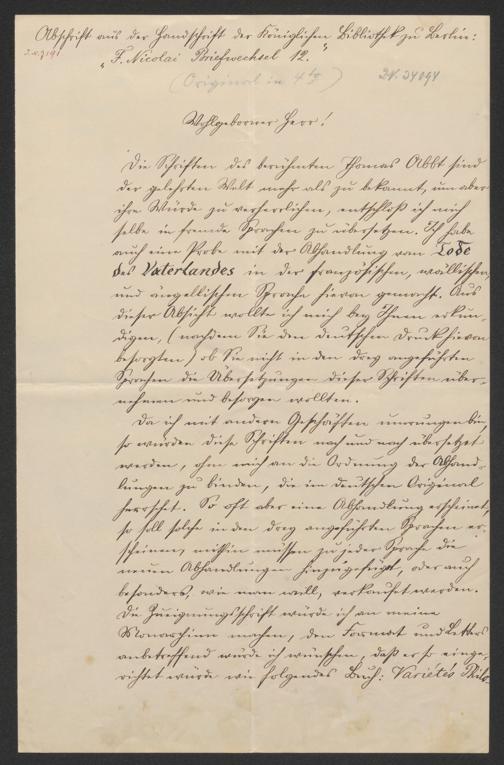 Abschrift aus der Handschrift der Königlichen Bibliothek zu Berlin:
„F. Nicolai Briefwechsel 12."
(Original in 4to)
Wohlgeborner Herr!
Die Schriften des berühmten Thomas Abbt sind
der gelehrten Welt mehr als zu bekannt, um aber
ihre Würde zu verherrlichen, entschloß ich mich
selbe in fremde Sprachen zu übersetzen. Ich habe
auch eine Probe mit der Abhandlung vom Tode
des Vaterlandes in der französischen, wällischen,
und ängellischen Sprache hievon gemacht. Aus
dieser Absicht wollte ich mich bey Ihnen erkun-
digen, (nachdem Sie den deutschen Druck hievon
besorgten) ob Sie nicht in den drey angeführten
Sprachen die Übersetzungen dieser Schriften über-
nehmen und besorgen wollten.
Da ich mit andern Geschäften umrungen bin,
so würden diese Schriften nach und nach übersetzt
werden, ohne mich an die Ordnung der Abhand-
lungen zu binden, die im deutschen Original
herrscht. So oft aber eine Abhandlung erscheinet,
so soll solche in den drey angeführten Sprachen er-
scheinen, mithin müssen zu jeder Sprache die
neuen Abhandlungen hinzugefügt, oder auch
besonders, wie man will, verkaufet werden.
Die Zueignungsschrift würde ich an meine
Monarchinn machen, den Format und Letters
anbetreffend würde ich wünschen, daß er so einge-
richtet würde wie folgendes Buch: Varietés Philo